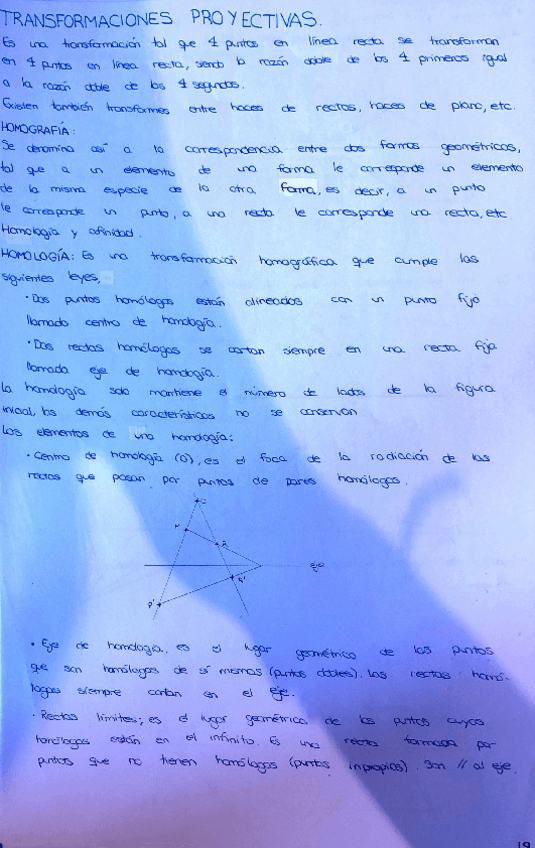 TRANSFORMACIONES PROYECTIVAS.
Es una transformación tal que 4 puntos en línea recta se transforman
en 4 puntos en línea recta, siendo la razón doble de los 4 primeros igual
a la razón doble de los 4 segundos.
Existen también transformes entre haces de rectas, haces de plano, etc.
HOMOGRAFÍA:
Se denomina así a la correspondencia entre dos formas geométricas,
tal que a un elemento de una forma le corresponde un elemento
de la misma especie de la otra forma, es decir, a un punto
le corresponde un punto, a una recta le corresponde una recta, etc
Homología y afinidad.
HOMOLOGÍA: Es una transformación homográfica que cumple las
siguientes leyes,
· Dos puntos homólogos están alineados con un punto fijo
llamado centro de homología.
· Dos rectas homólogas se cortan siempre en una recta fija
llamada eje de homología.
La homología solo mantiene el número de lados de la figura
inicial, las demás características no se conservan
Los elementos de una homología:
· Centro de homología (O), es el foco de la radiación de las
rectas que pasan por puntos de pares homólogos.
eje
P'
· Eje de homología, es el lugar geométrico de los puntos
que son homólogos de sí mismos (puntos dobles). Las rectas homó-
logas siempre cortan en el eje.
· Rectas límites; es el lugar geométrico de los puntos cuyos
homólogos están en el infinito. Es una recta formada por
puntos que no tienen homólogos (puntos impropios). Son // al eje.
19